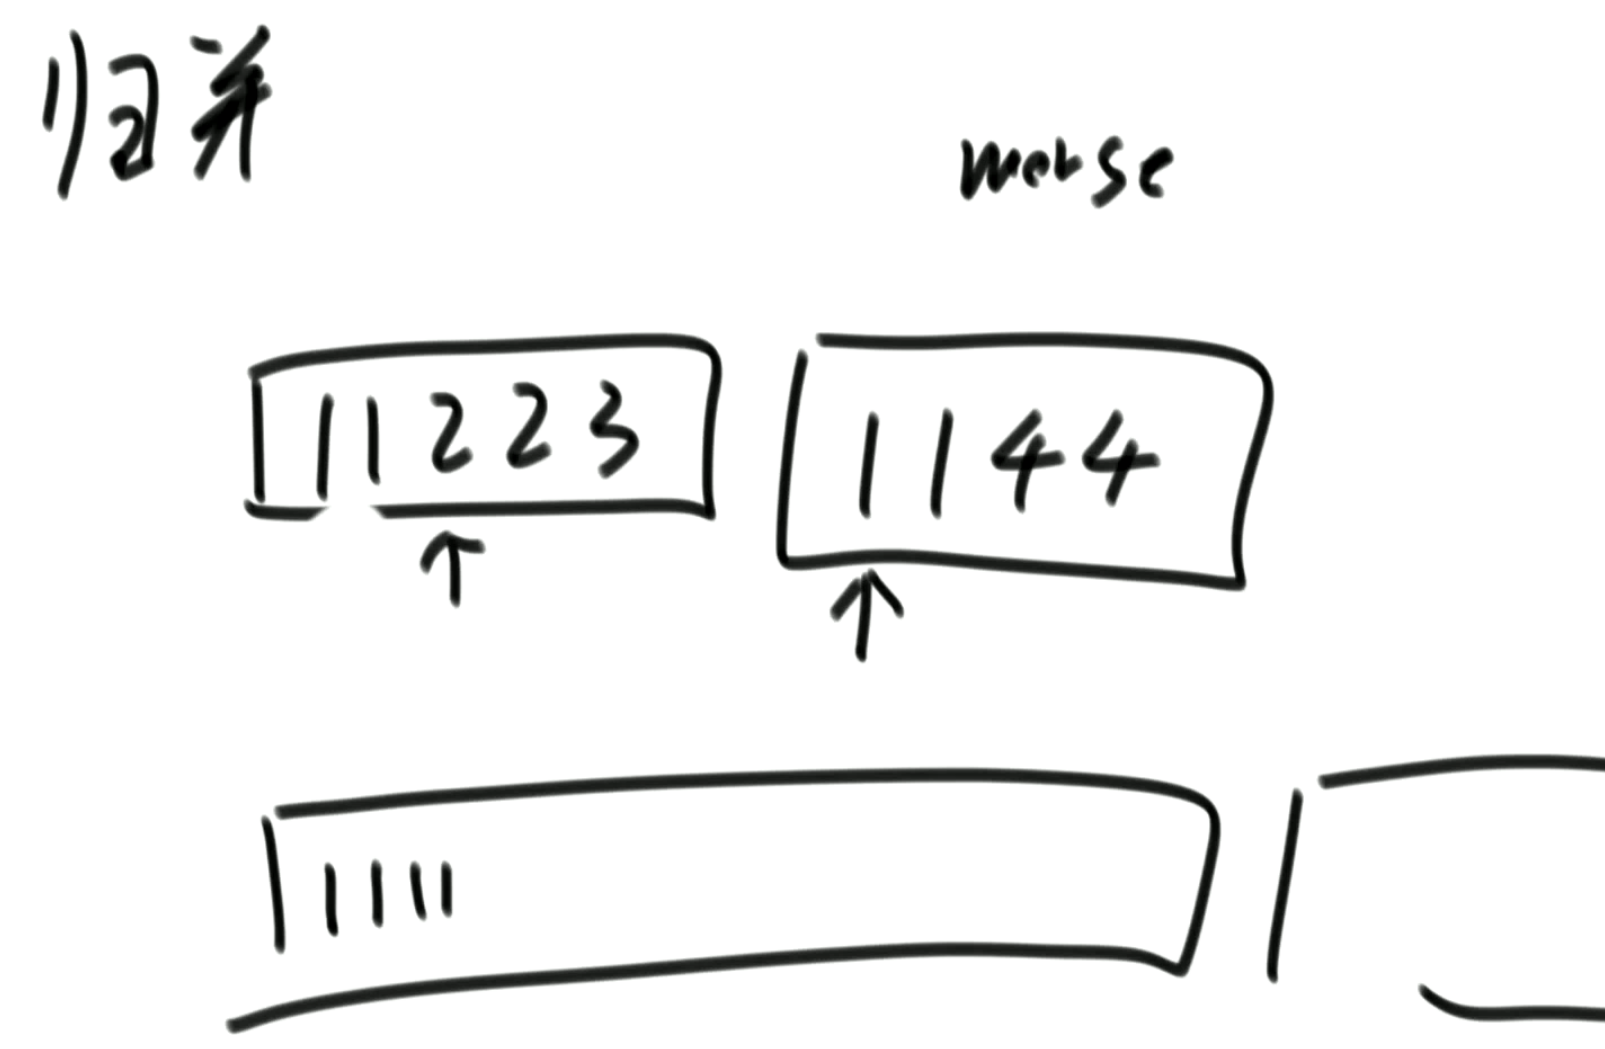 归并
merge
11223
1144
1111